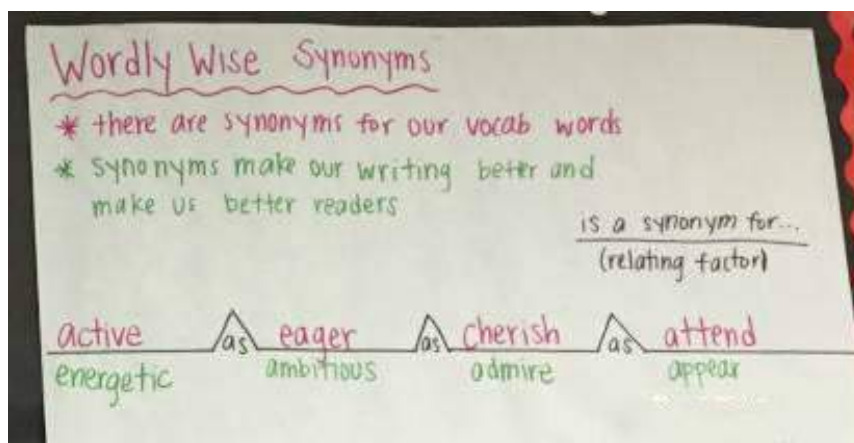 Wordly Wise Synonyms
* there are synonyms for our vocab words
* synonyms make our writing better and
make us better readers
is a synonym for...
(relating factor)
active as eager as cherish as attend
energetic ambitious admire appear